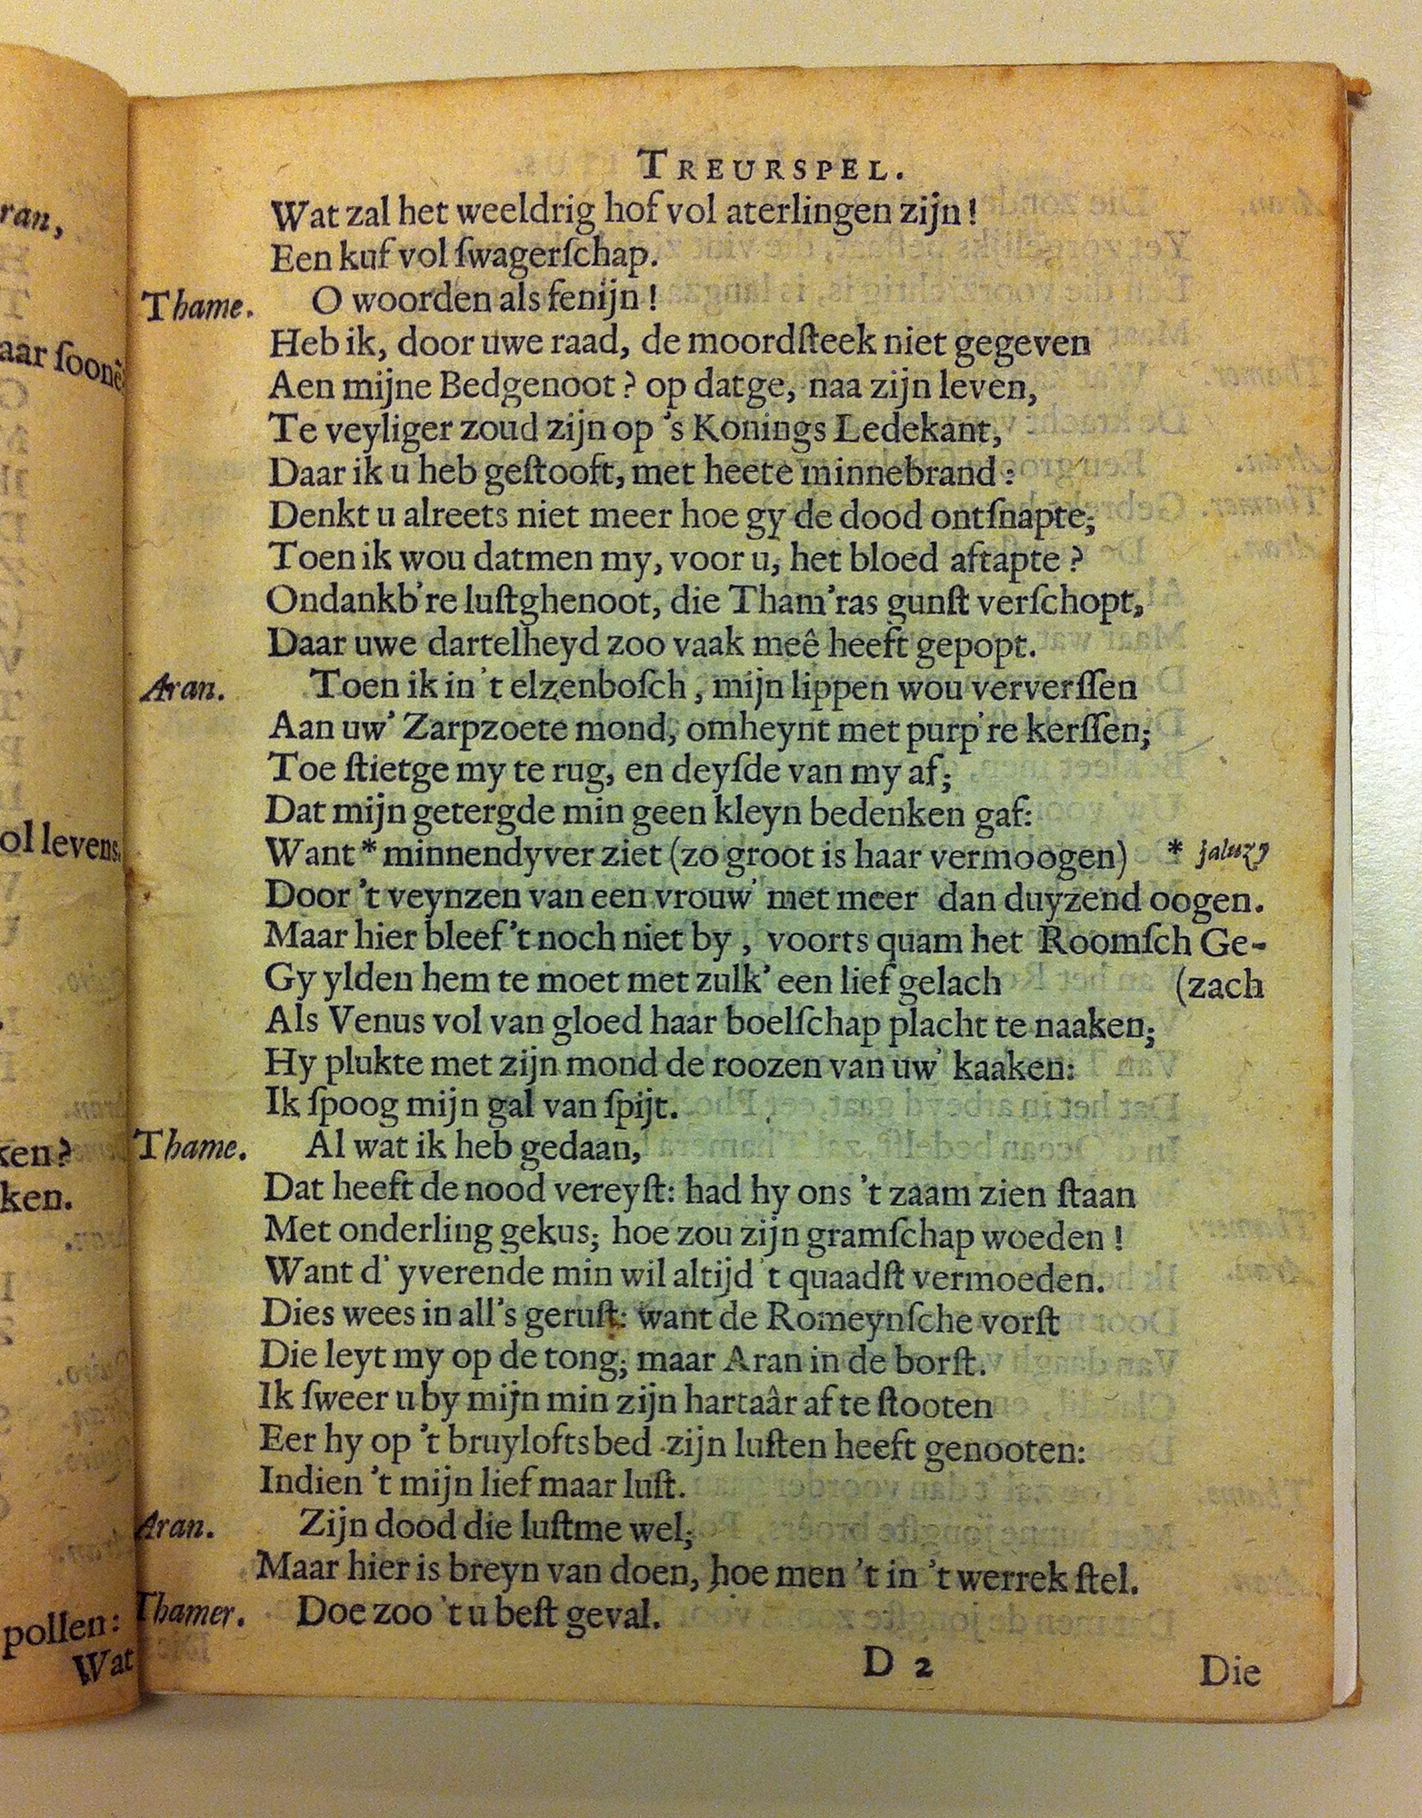 ran,
aar ſoonê
ol levens.
ken?
ken.
pollen:
Wat
TREURSPEL.
Wat zal het weeldrig hof vol aterlingen zijn!
Een kuf vol ſwagerſchap.
Thame. O woorden als fenijn!
Heb ik, door uwe raad, de moordſteek niet gegeven
Aen mijne Bedgenoot? op datge, naa zijn leven,
Te veyliger zoud zijn op 's Konings Ledekant,
Daar ik u heb geſtooft, met heete minnebrand:
Denkt u alreets niet meer hoe gy de dood ontſnapte,
Toen ik wou datmen my, voor u, het bloed aftapte?
Ondankb're luſtghenoot, die Tham'ras gunſt verſchopt,
Daar uwe dartelheyd zoo vaak meê heeft gepopt.
Aran. Toen ik in 't elzenboſch, mijn lippen wou ververſſen
Aan uw' Zarpzoete mond, omheynt met purp're kerſſen;
Toe ſtietge my te rug, en deyſde van my af;
Dat mijn getergde min geen kleyn bedenken gaf:
Want * minnendyver ziet (zo groot is haar vermoogen) * jaluzy
Door 't veynzen van een vrouw' met meer dan duyzend oogen.
Maar hier bleef 't noch niet by, voorts quam het Roomſch Ge-
Gy ylden hem te moet met zulk' een lief gelach (zach
Als Venus vol van gloed haar boelſchap placht te naaken;
Hy plukte met zijn mond de roozen van uw' kaaken:
Ik ſpoog mijn gal van ſpijt.
Thame. Al wat ik heb gedaan,
Dat heeft de nood vereyſt: had hy ons 't zaam zien ſtaan
Met onderling gekus; hoe zou zijn gramſchap woeden!
Want d' yverende min wil altijd 't quaadſt vermoeden.
Dies wees in all's geruſt: want de Romeynſche vorſt
Die leyt my op de tong; maar Aran in de borſt.
Ik ſweer u by mijn min zijn hartaâr af te ſtooten
Eer hy op 't bruylofts bed zijn luſten heeft genooten:
Indien 't mijn lief maar luſt.
Aran. Zijn dood die luſtme wel;
Maar hier is breyn van doen, hoe men 't in 't werrek ſtel.
Thamer. Doe zoo 't u beſt geval.
D 2 Die